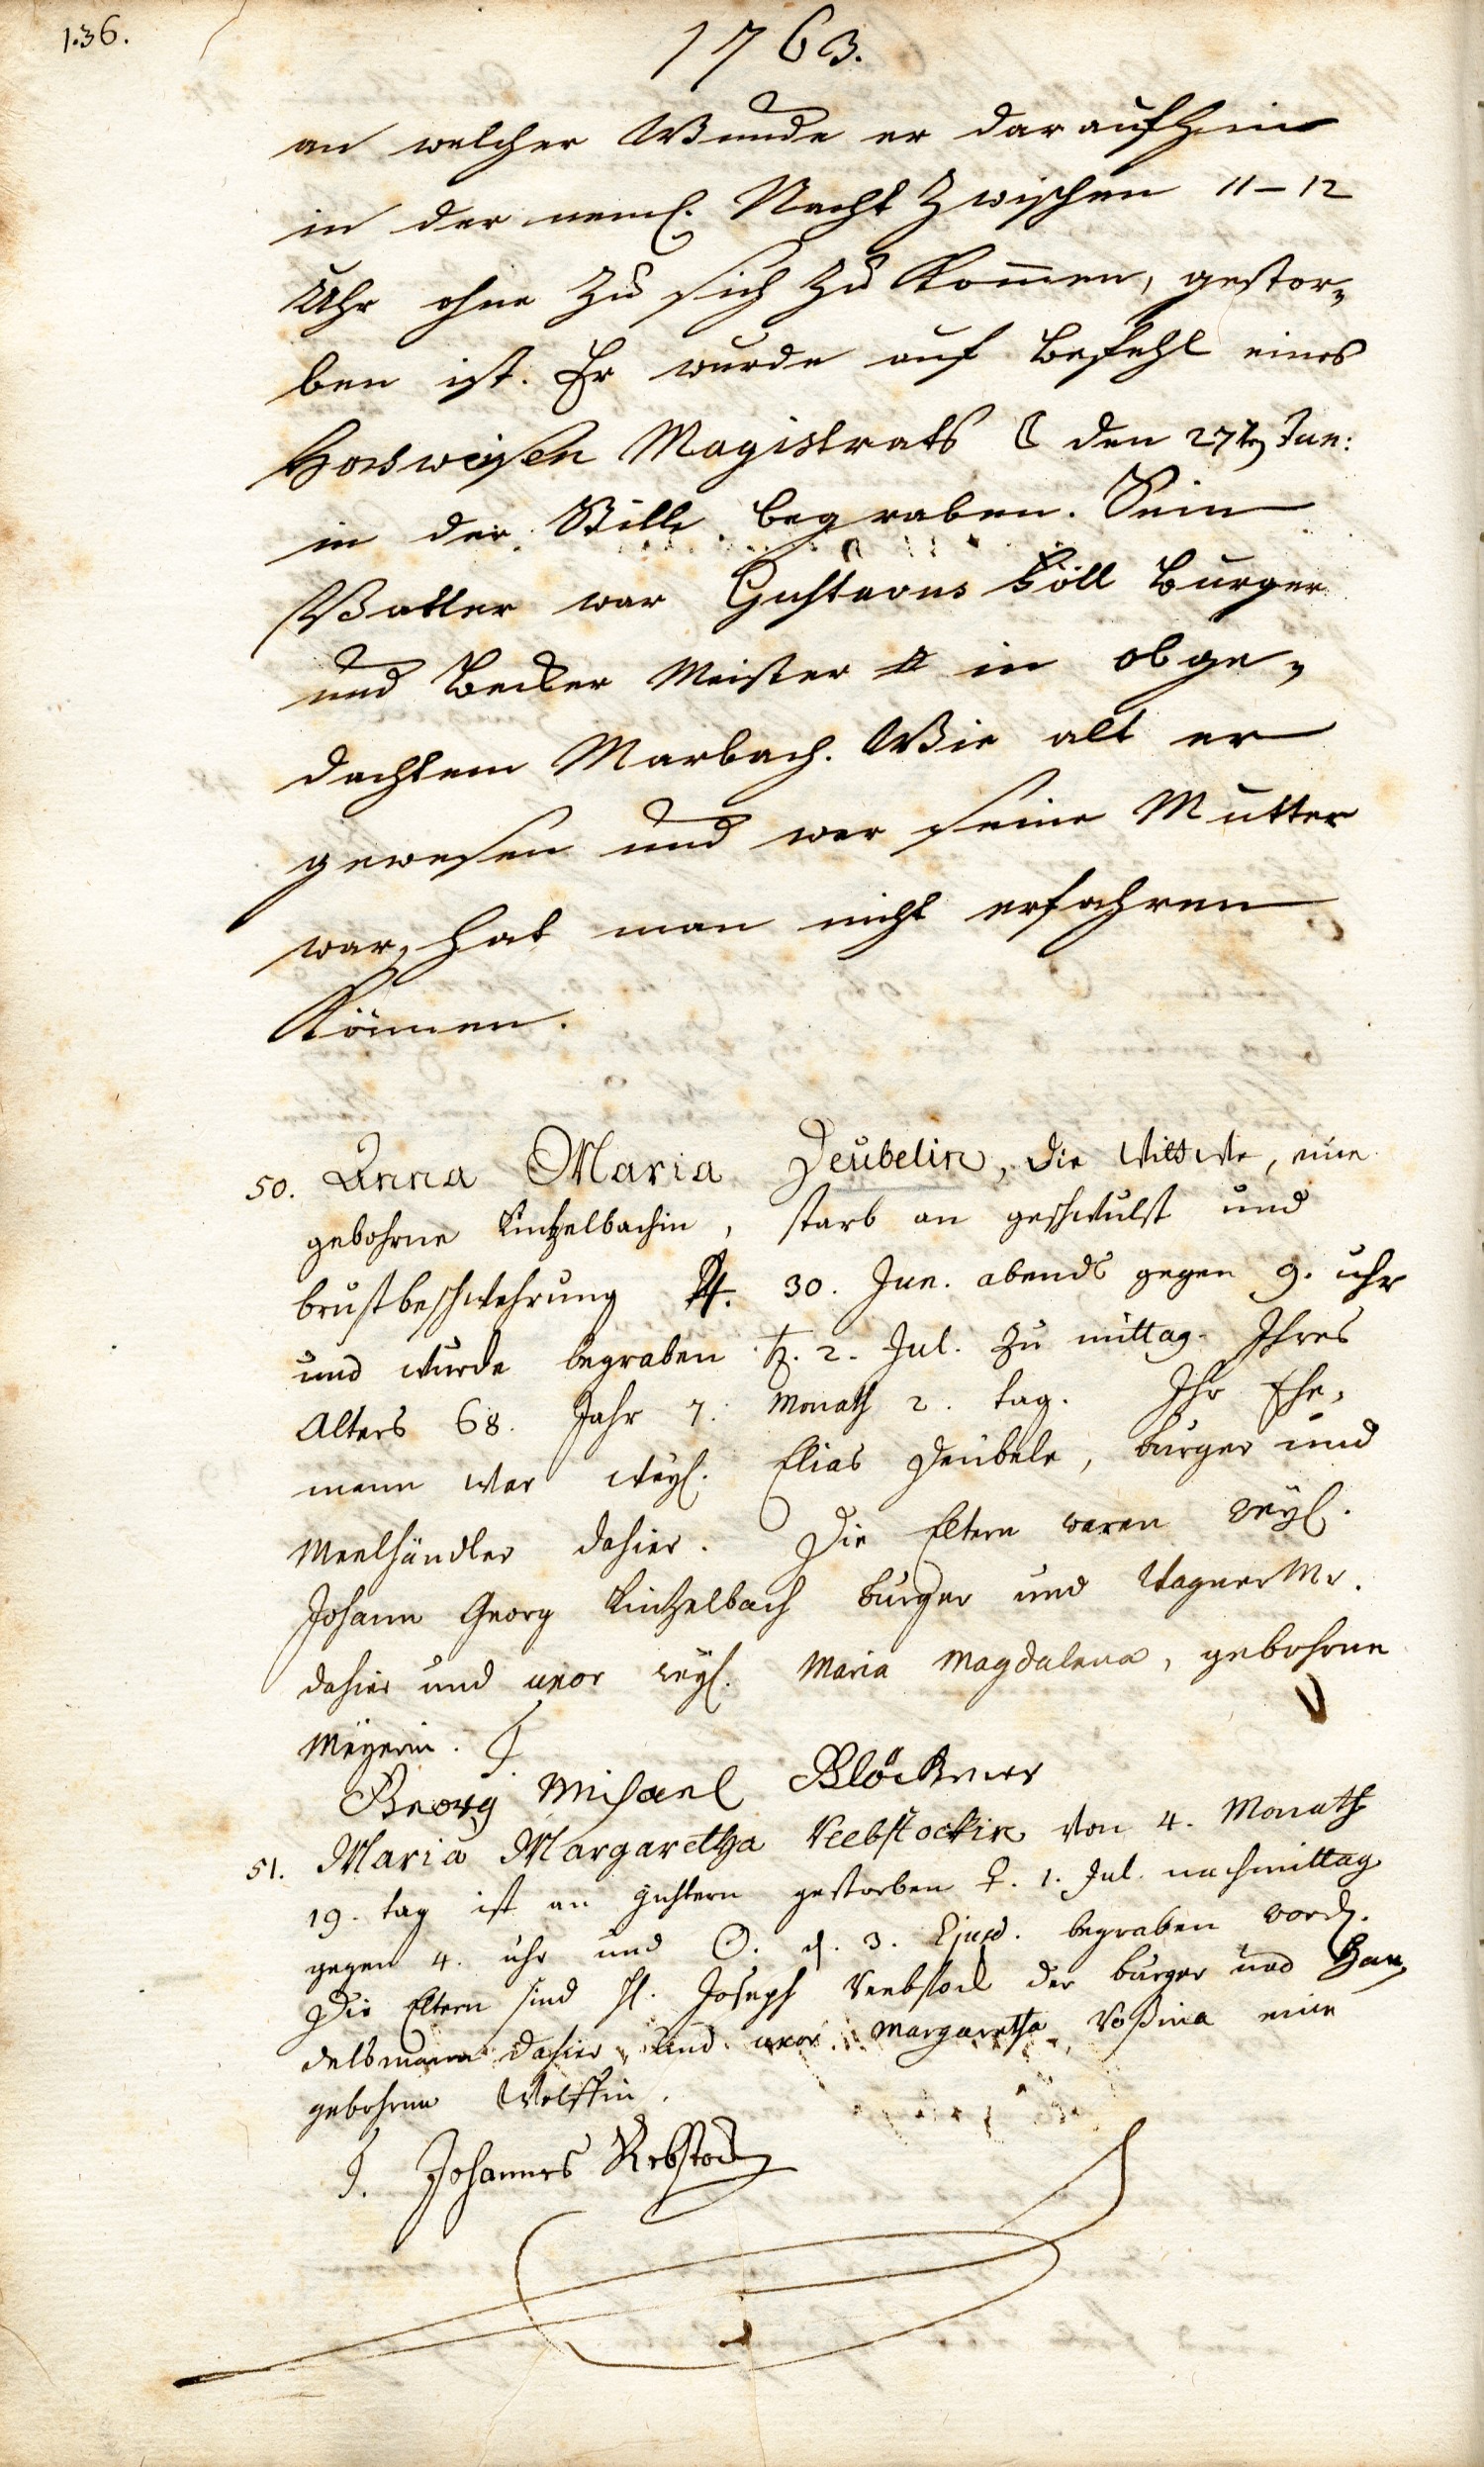 136.
1763.
an welcher Wunde er daraufhin
in der neml. Nacht zwischen 11–12
Uhr ohne zu sich zu kom̄en, gestor„
ben ist. Er wurde auf Befehl eines
Hochweisen Magistrats ☾ den 27ten Jun:
in der Stille begraben. Sein
Vatter war Gustavus Böll Burger
und Becker Meister in obge„
dachtem Marbach. Wie alt er
gewesen und wer seine Mutter
war, hat man nicht erfahren
können.
50. Anna Maria Deubelin, die Wittwe, eine
gebohrne Kintzelbachin, starb an geschwulst und
brustbeschwehrung ♃. 30. Jun. abends gegen 9. uhr
und wurde begraben ♄. 2. Jul. zu mittag. Ihres
Alters 68. Jahr 7. Monath 2. tag. Ihr Ehe„
mann war weyl. Elias Deubele, burger und
Meelhändler dahier. Die Eltern waren weyl.
Johann Georg Kintzelbach burger und Wagner Mr.
dahier und uxor weyl. Maria Magdalena, gebohrne
Meyerin.
Georg Michael Blöckner
51. Maria Margaretha Reebstockin von 4. Monath
19. tag ist an Gichtern gestorben ♀. 1. Jul. nachmittag
gegen 4. uhr und ☉. d. 3. Ejusd. begraben word.
Die Eltern sind H. Joseph Reebstock der burger und Han„
delsmann dahier und uxor Margaretha Rosina eine
gebohrne Wolffin.
J. Johannes Rebstock